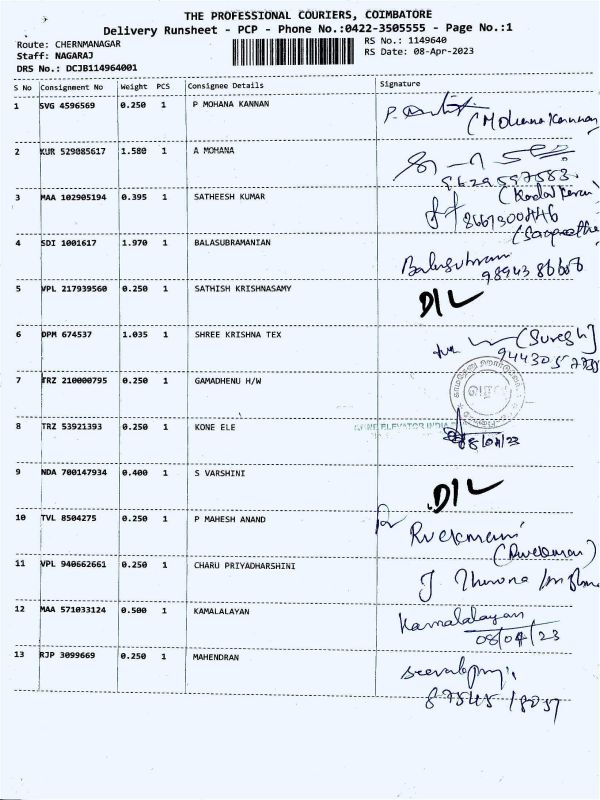 THE PROFESSIONAL COURIERS, COIMBATORE
Delivery Runsheet - PCP - Phone No.:0422-3505555 - Page No.:1
Route: CHERNMANAGAR
RS No.: 1149640
Staff: NAGARAJ
RS Date: 08-Apr-2023
DRS No.: DCJB114964001
S No Consignment No Weight PCS Consignee Details Signature
1 SVG 4596569 0.250 1 P MOHANA KANNAN
(Mohana Kannan)
2 KUR 529085617 1.580 1 A MOHANA
9629597583
3 MAA 102905194 0.395 1 SATHEESH KUMAR
4 SDI 1001617 1.970 1 BALASUBRAMANIAN
5 VPL 217939560 0.250 1 SATHISH KRISHNASAMY D/L
6 DPM 674537 1.035 1 SHREE KRISHNA TEX (Suresh)
7 TRZ 210000795 0.250 1 GAMADHENU H/W
வரவு
8 TRZ 53921393 0.250 1 KONE ELE
KONE ELEVATOR INDIA
8/04/23
9 NDA 700147934 0.400 1 S VARSHINI D/L
10 TVL 8504275 0.250 1 P MAHESH ANAND
11 VPL 940662661 0.250 1 CHARU PRIYADHARSHINI
12 MAA 571033124 0.500 1 KAMALALAYAN Kamalalayan
08/04/23
13 RJP 3099669 0.250 1 MAHENDRAN